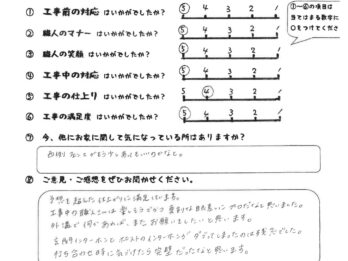 ① 工事前の対応 はいかがでしたか? ⑤ 4 3 2 1
② 職人のマナー はいかがでしたか? ⑤ 4 3 2 1
③ 職人の笑顔 はいかがでしたか? ⑤ 4 3 2 1
④ 工事中の対応 はいかがでしたか? ⑤ 4 3 2 1
⑤ 工事の仕上り はいかがでしたか? 5 ④ 3 2 1
⑥ 工事の満足度 はいかがでしたか? ⑤ 4 3 2 1
①~⑥の項目は
当てはまる数字に
○をつけてくださ
⑦ 今、他にお家に関して気になっている所はありますか?
西側
⑧ ご意見・ご感想をぜひお聞かせください。
予想を超した仕上がりに満足しています。
工事中の職人さんは楽しそうでかつ真剣な
外構で何かあれば、またお願いしたいと思います。
玄関インターホンとポストのインターホンがダブってしまったのは残念でした。
打ち合わせ時に気づけたら完璧だったなと思います。